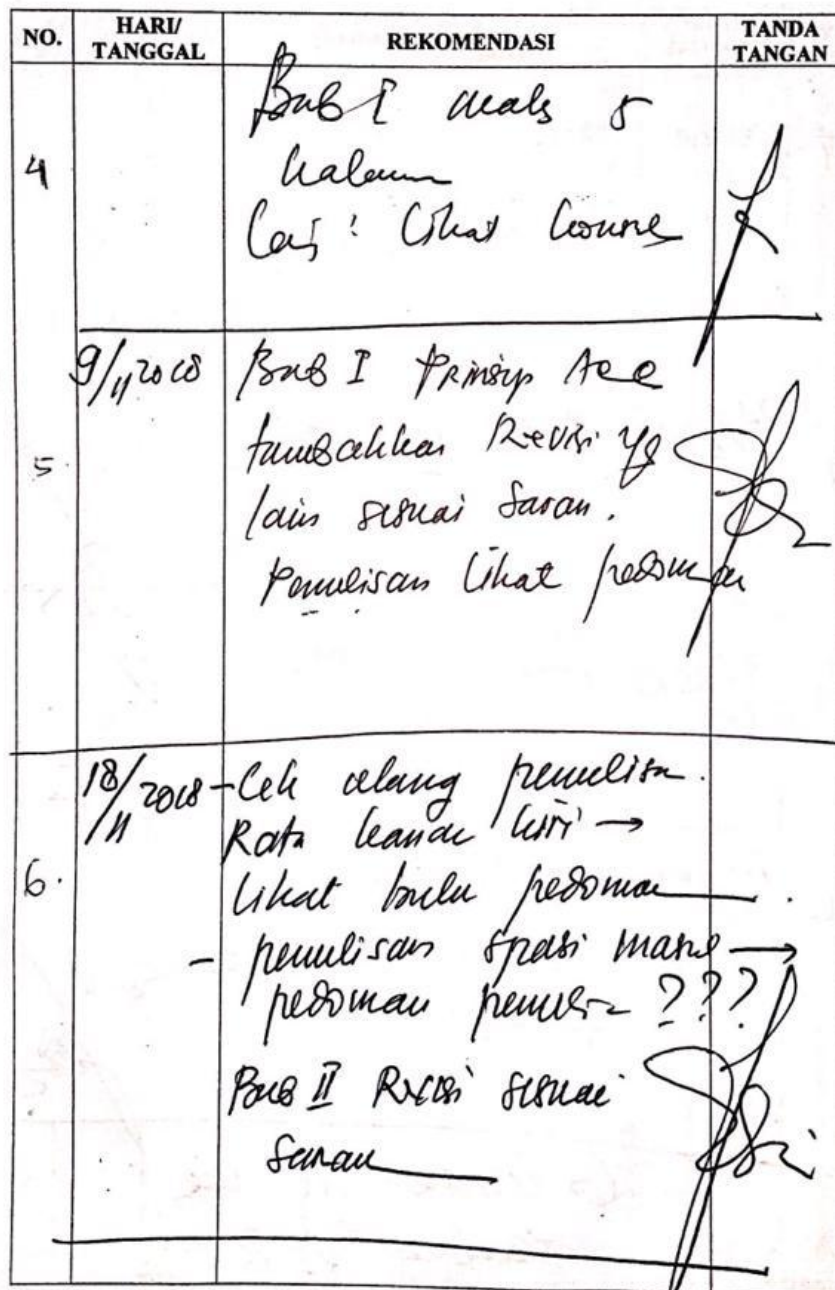 NO. HARI/ TANGGAL REKOMENDASI TANDA TANGAN
4 Bab I maks 5
halaman
Lihat
5 9/11 2018 Bab I Prinsip Acc
tambahkan Revisi yg
lain sesuai saran.
Penulisan lihat pedoman
6. 18/11 2018 - Cek ulang penulisan.
Rata kanan kiri →
lihat buku pedoman .
- penulisan spasi →
pedoman penulisan ???
Bab II Revisi sesuai
saran